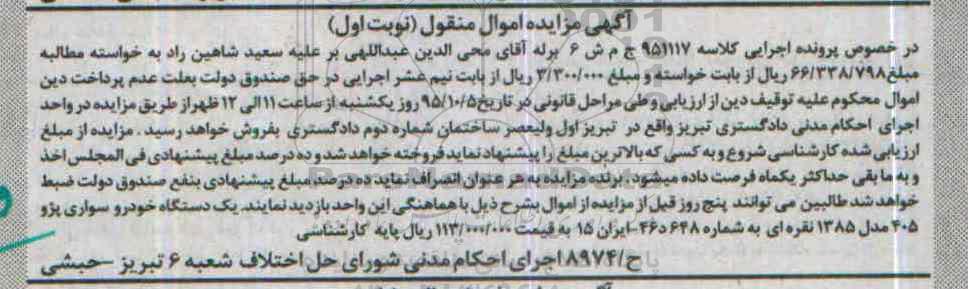 آگهی مزایده اموال منقول (نوبت اول)
در خصوص پرونده اجرایی کلاسه ۹۵۱۱۱۷ ج م ش ۶ برله آقای محی الدین عبداللهی بر علیه سعید شاهین راد به خواسته مطالبه
مبلغ ۶۶/۳۳۸/۷۹۸ ریال از بابت خواسته و مبلغ ۳/۳۰۰/۰۰۰ ریال از بابت نیم عشر اجرایی در حق صندوق دولت بعلت عدم پرداخت دین
اموال محکوم علیه توقیف دین از ارزیابی و طی مراحل قانونی در تاریخ ۹۵/۱۰/۵ روز یکشنبه از ساعت ۱۱ الی ۱۲ ظهر از طریق مزایده در واحد
اجرای احکام مدنی دادگستری تبریز واقع در تبریز اول ولیعصر ساختمان شماره دوم دادگستری بفروش خواهد رسید . مزایده از مبلغ
ارزیابی شده کارشناسی شروع و به کسی که بالاترین مبلغ را پیشنهاد نماید فروخته خواهد شد و ده درصد مبلغ پیشنهادی فی المجلس اخذ
و به ما بقی حداکثر یکماه فرصت داده میشود. برنده مزایده به هر عنوان انصراف نماید ده درصد مبلغ پیشنهادی بنفع صندوق دولت ضبط
خواهد شد طالبین می توانند پنج روز قبل از مزایده از اموال بشرح ذیل با هماهنگی این واحد بازدید نمایند. یک دستگاه خودرو سواری پژو
۴۰۵ مدل ۱۳۸۵ نقره ای به شماره ۶۴۸د۴۶-ایران ۱۵ به قیمت ۱۱۳/۰۰۰/۰۰۰ ریال پایه کارشناسی
ح/۸۹۷۴ اجرای احکام مدنی شورای حل اختلاف شعبه ۶ تبریز -حبشی